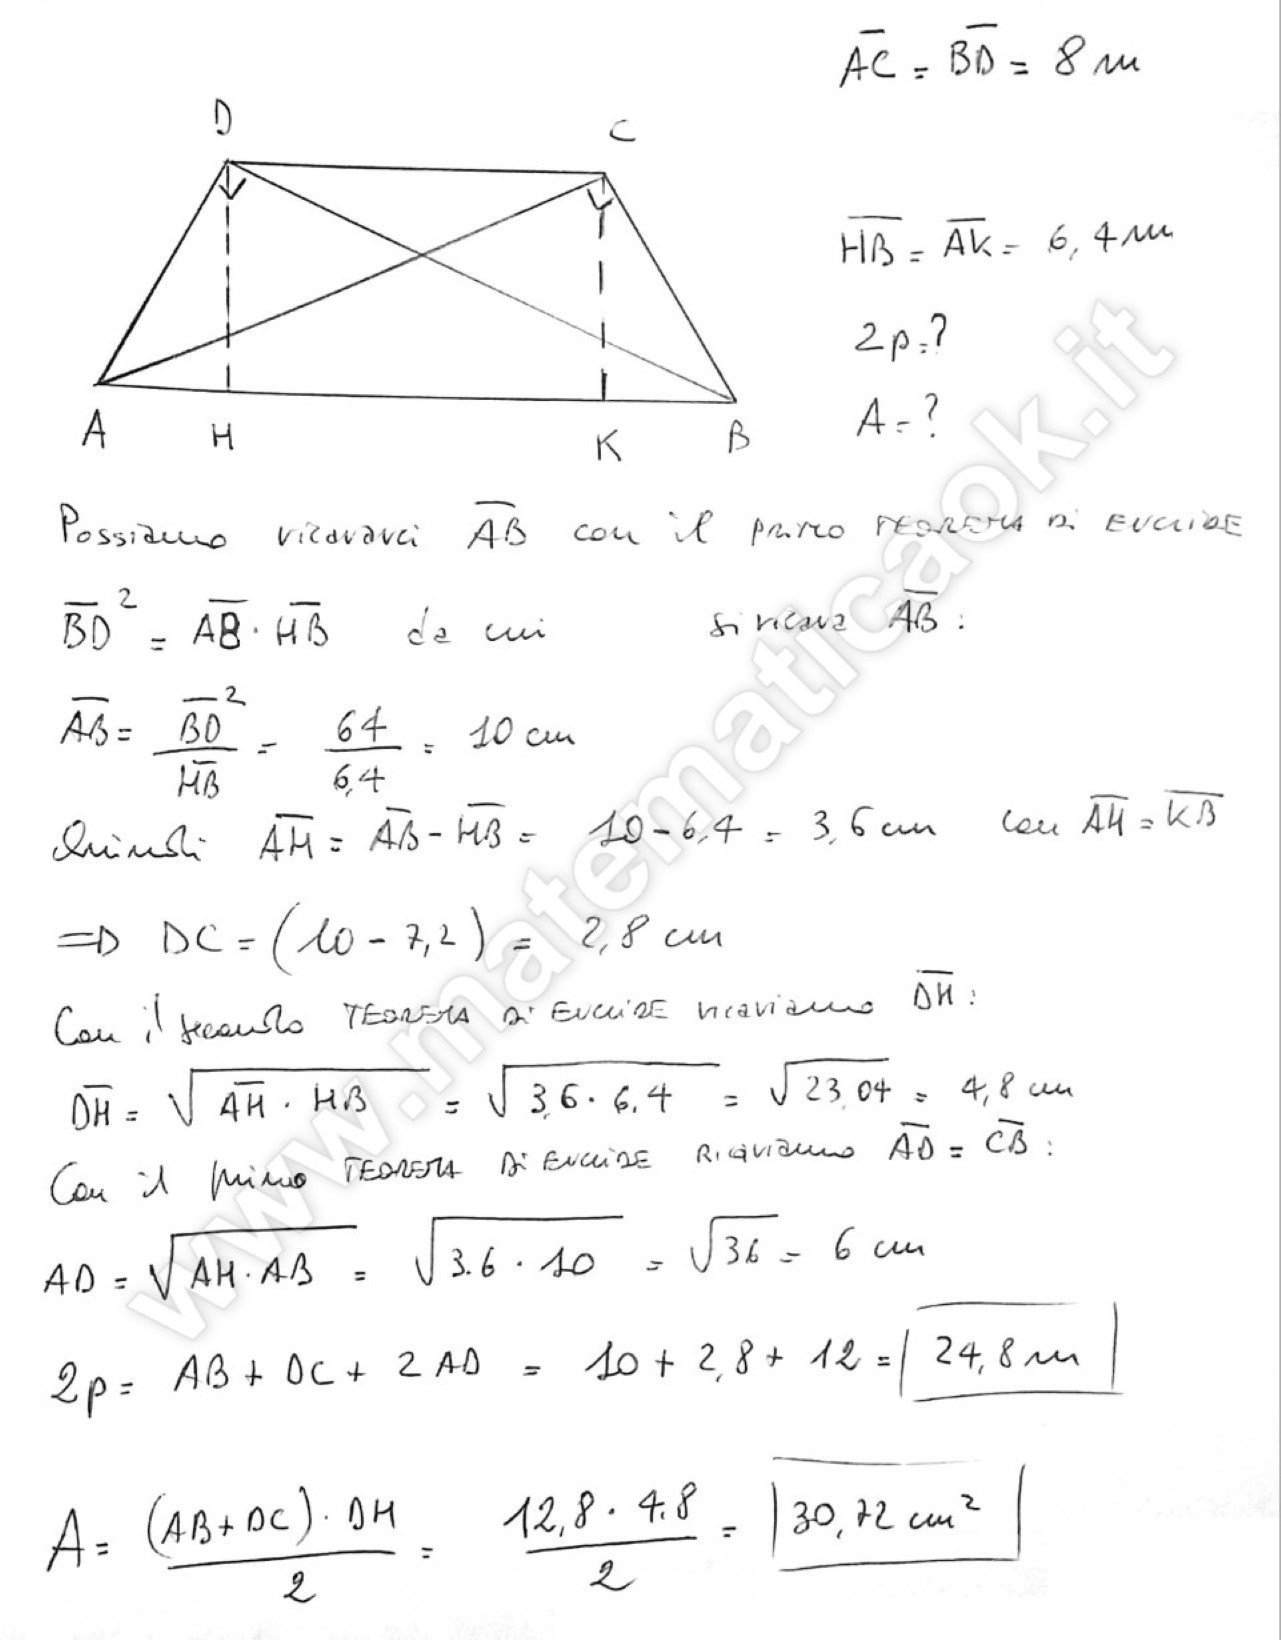 AC = BD = 8 m
D
C
HB = AK = 6,4 m
2p = ?
A = ?
A H K B
Possiamo ricavarci AB con il primo TEOREMA DI EUCLIDE
BD² = AB · HB da cui si ricava AB :
AB = BD² / HB = 64 / 6,4 = 10 cm
Quindi AH = AB - HB = 10 - 6,4 = 3,6 cm con AH = KB
=> DC = (10 - 7,2) = 2,8 cm
Con il secondo TEOREMA DI EUCLIDE ricaviamo DH :
DH = √AH · HB = √3,6 · 6,4 = √23,04 = 4,8 cm
Con il primo TEOREMA DI EUCLIDE RICAVIAMO AD = CB :
AD = √AH · AB = √3.6 · 10 = √36 = 6 cm
2p = AB + DC + 2 AD = 10 + 2,8 + 12 = 24,8 m
A = (AB + DC) · DH / 2 = 12,8 · 4,8 / 2 = 30,72 cm²
www.matematicaok.it